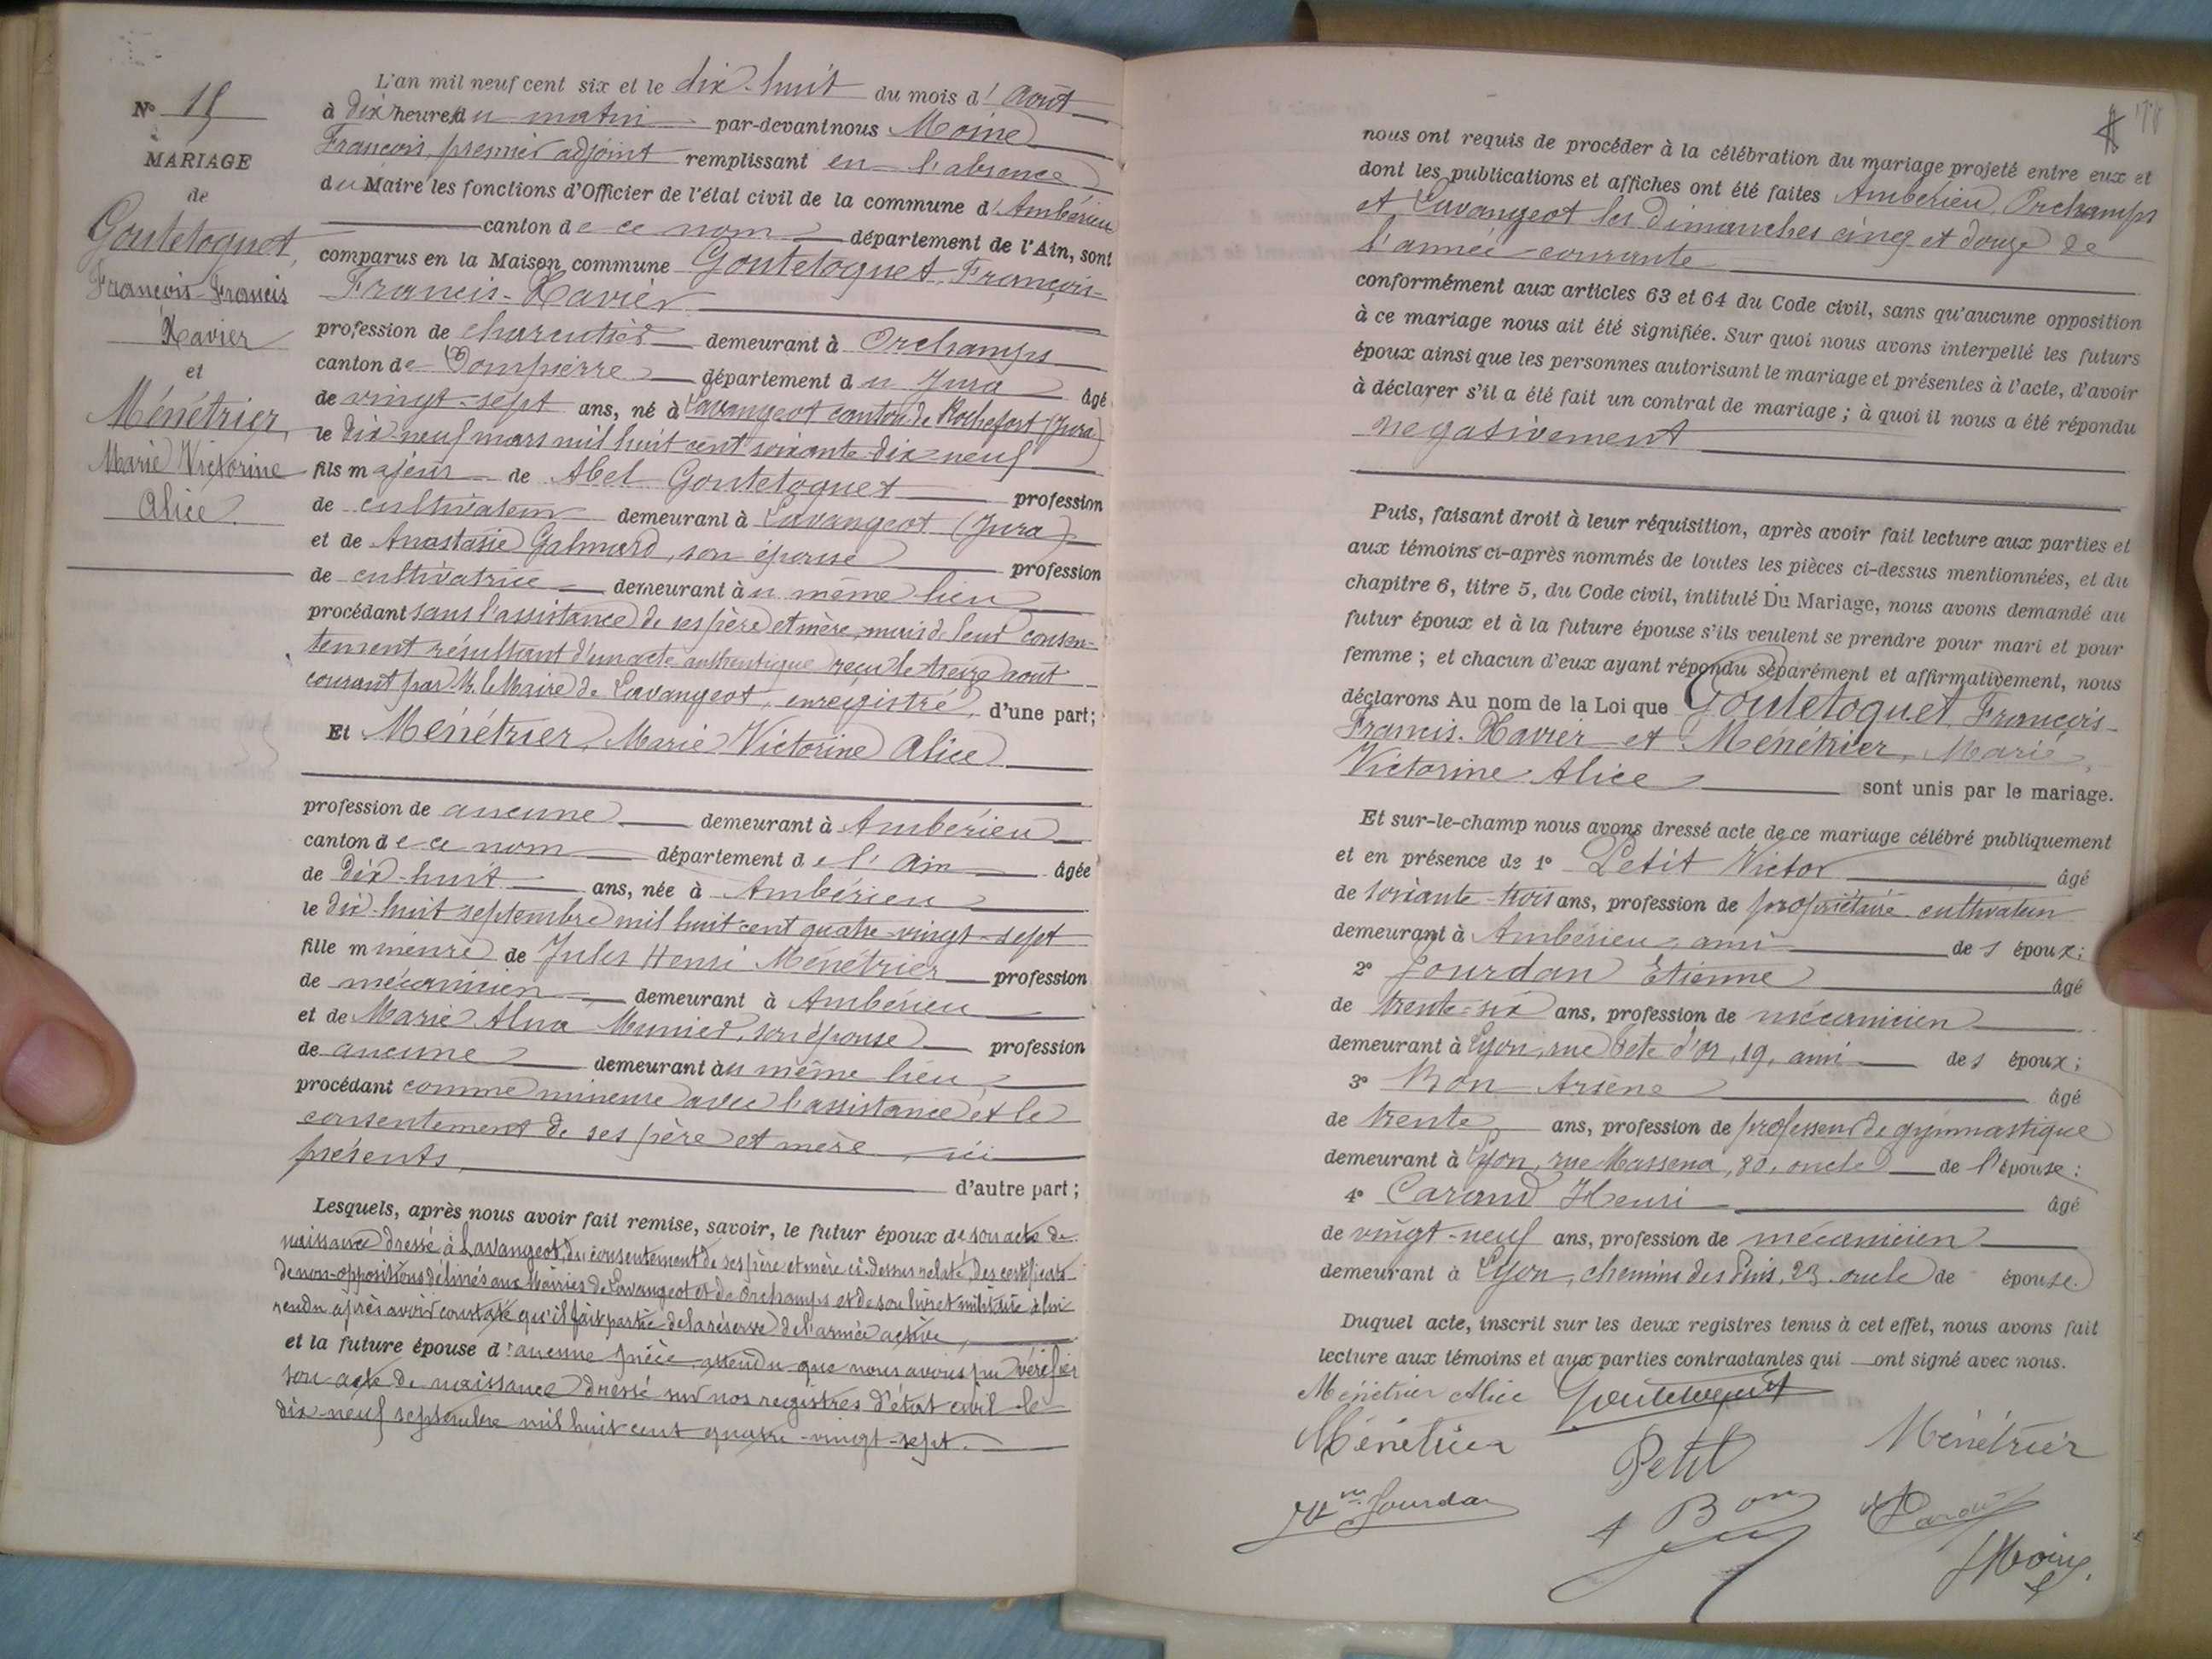 N° 15
MARIAGE
de
Goutetoquet,
François-Francis
Xavier
et
Ménétrier,
Marie Victorine
Alice
L'an mil neuf cent six et le dix-huit du mois d'Août
à dix heures du matin par-devant nous Moine
François, premier adjoint remplissant en l'absence
du Maire les fonctions d'Officier de l'état civil de la commune d'Ambérieu
canton de ce nom département de l'Ain, sont
comparus en la Maison commune Goutetoquet, François-
Francis-Xavier
profession de charcutier demeurant à Orchamps
canton de Dompierre département du Jura âgé
de vingt-sept ans, né à Lavangeot canton de Rochefort (Jura)
le dix-neuf mars mil huit cent soixante-dix-neuf
fils majeur de Abel Goutetoquet profession
de cultivateur demeurant à Lavangeot (Jura)
et de Anastasie Galmard, son épouse profession
de cultivatrice demeurant au même lieu
procédant sans l'assistance de ses père et mère, mais de leur consen-
tement résultant d'un acte authentique reçu le treize août
courant par M. le Maire de Lavangeot, enregistré, d'une part;
Et Ménétrier, Marie Victorine Alice
profession de aucune demeurant à Ambérieu
canton de ce nom département de l'Ain âgée
de dix-huit ans, née à Ambérieu
le dix-huit septembre mil huit cent quatre-vingt-sept
fille mineure de Jules Henri Ménétrier profession
de mécanicien demeurant à Ambérieu
et de Marie Alna Munier, son épouse profession
de aucune demeurant au même lieu
procédant comme mineure avec l'assistance et le
consentement de ses père et mère ici
présents d'autre part;
Lesquels, après nous avoir fait remise, savoir, le futur époux de son acte de
naissance dressé à Lavangeot, du consentement de ses père et mère ci-dessus relaté, des certificats
de non-oppositions délivrés aux Mairies de Lavangeot et de Orchamps et de son livret militaire à lui
rendu après avoir constaté qu'il fait partie de la réserve de l'armée active,
et la future épouse d'aucune pièce, attendu que nous avons pu vérifier
son acte de naissance dressé sur nos registres d'état civil le
dix-neuf septembre mil huit cent quatre-vingt-sept.
nous ont requis de procéder à la célébration du mariage projeté entre eux et
dont les publications et affiches ont été faites Ambérieu, Orchamps
et Lavangeot les dimanches cinq et douze de
l'année courante
conformément aux articles 63 et 64 du Code civil, sans qu'aucune opposition
à ce mariage nous ait été signifiée. Sur quoi nous avons interpellé les futurs
époux ainsi que les personnes autorisant le mariage et présentes à l'acte, d'avoir
à déclarer s'il a été fait un contrat de mariage; à quoi il nous a été répondu
négativement
Puis, faisant droit à leur réquisition, après avoir fait lecture aux parties et
aux témoins ci-après nommés de toutes les pièces ci-dessus mentionnées, et du
chapitre 6, titre 5, du Code civil, intitulé Du Mariage, nous avons demandé au
futur époux et à la future épouse s'ils veulent se prendre pour mari et pour
femme; et chacun d'eux ayant répondu séparément et affirmativement, nous
déclarons Au nom de la Loi que Goutetoquet, François-
Francis-Xavier et Ménétrier, Marie
Victorine Alice sont unis par le mariage.
Et sur-le-champ nous avons dressé acte de ce mariage célébré publiquement
et en présence de 1° Petit Victor âgé
de soixante-trois ans, profession de propriétaire cultivateur
demeurant à Ambérieu, ami des époux;
2° Jourdan Etienne âgé
de trente-six ans, profession de mécanicien
demeurant à Lyon, rue Tête d'Or, 19, ami des époux;
3° Bon Arsène âgé
de trente ans, profession de professeur de gymnastique
demeurant à Lyon, rue Massena, 80, oncle de l'épouse;
4° Carand Henri âgé
de vingt-neuf ans, profession de mécanicien
demeurant à Lyon, chemin des Pins, 23, oncle de épouse.
Duquel acte, inscrit sur les deux registres tenus à cet effet, nous avons fait
lecture aux témoins et aux parties contractantes qui ont signé avec nous.
Ménétrier Alice Goutetoquet
Ménétrier Petit Ménétrier
Jourdan A Bon
Moine